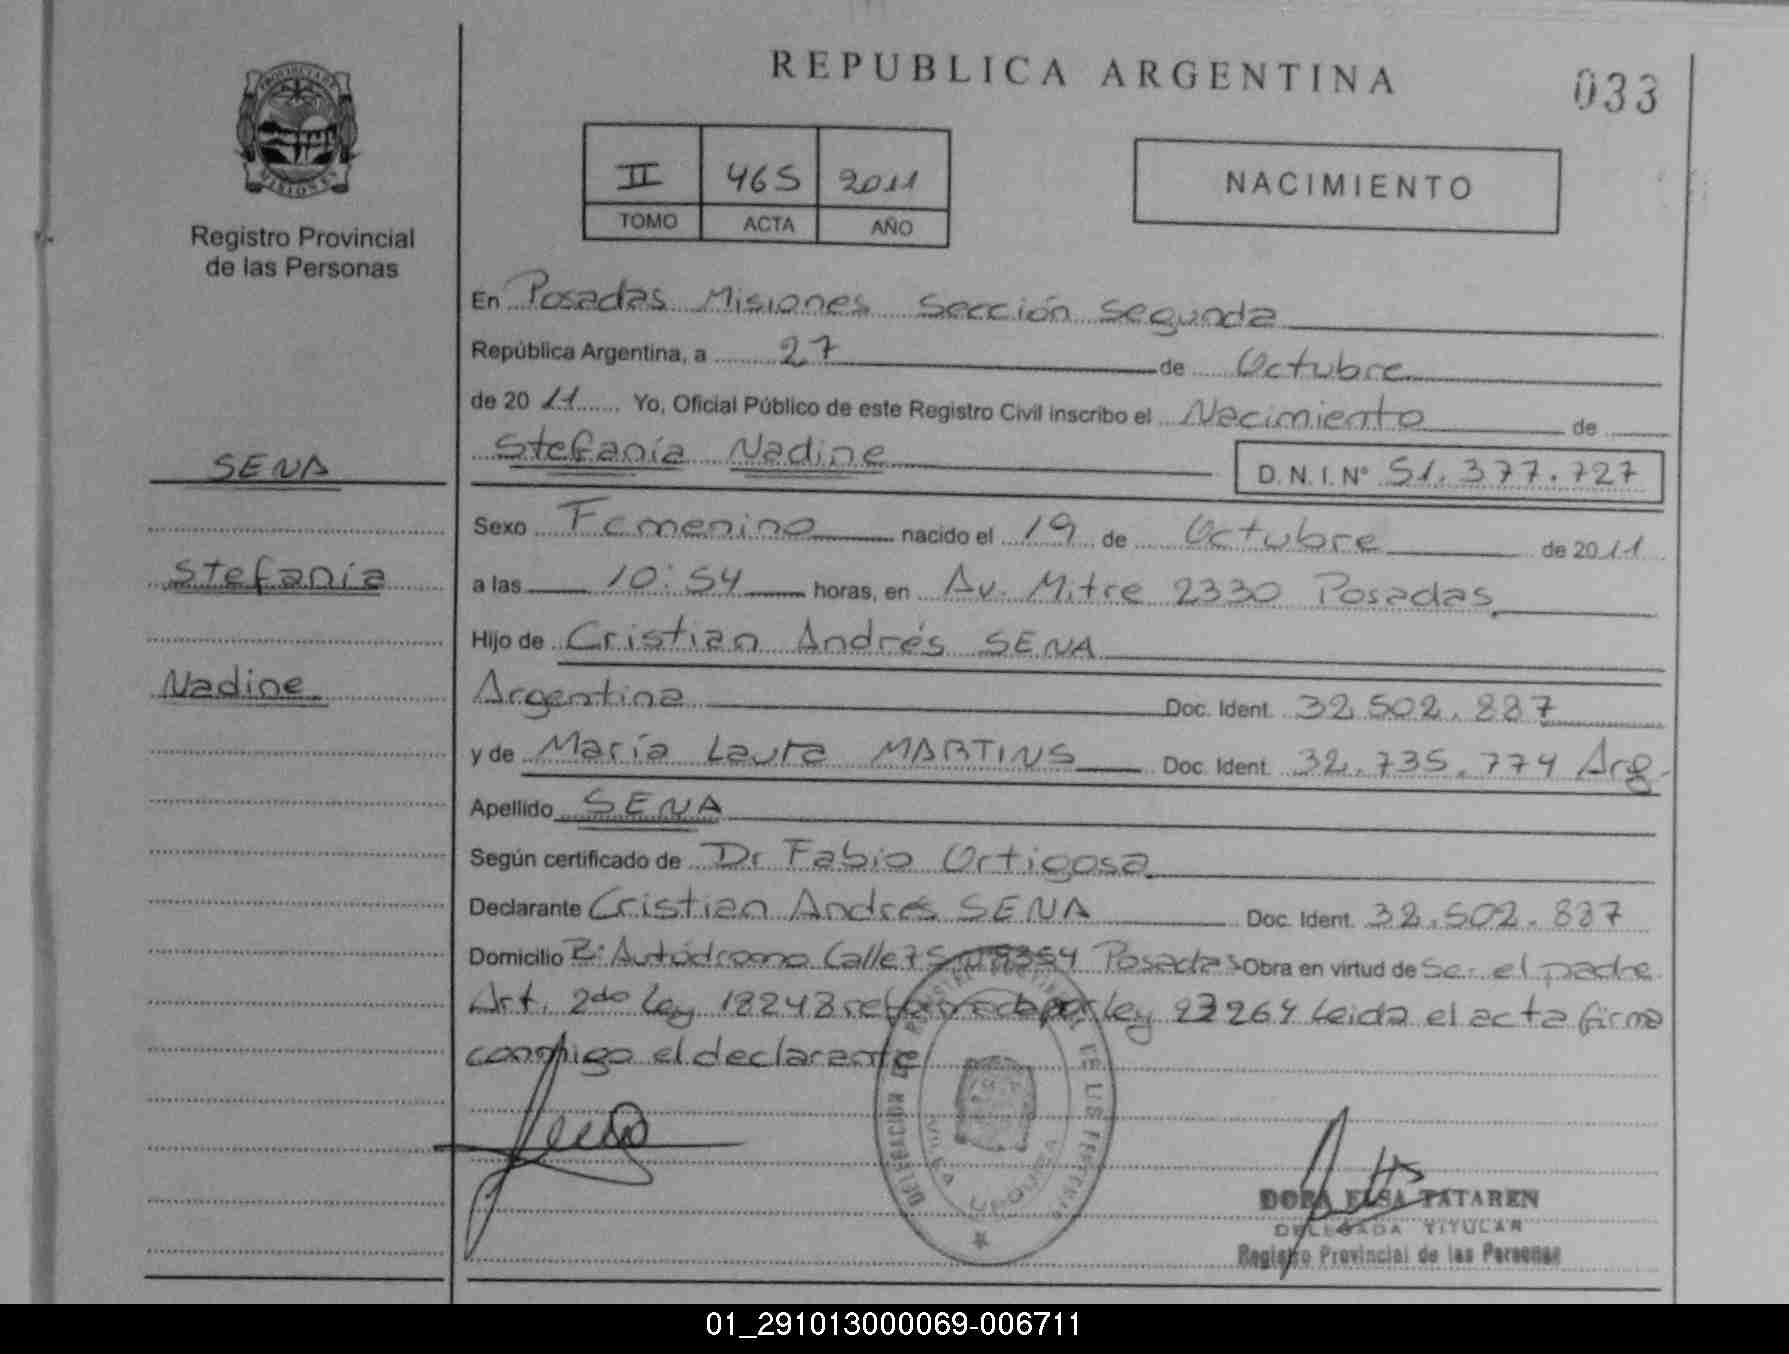 REPUBLICA ARGENTINA
033
PROVINCIA DE
MISIONES
Registro Provincial
de las Personas
II 465 2011
TOMO ACTA AÑO
NACIMIENTO
En Posadas Misiones Sección Segunda
República Argentina, a 27 de Octubre
de 20 11 Yo, Oficial Público de este Registro Civil inscribo el Nacimiento de
Stefanía Nadine D. N. I. Nº 51.377.727
SENA
Stefanía
Nadine
Sexo Femenino nacido el 19 de Octubre de 2011
a las 10:54 horas, en Av. Mitre 2330 Posadas
Hijo de Cristian Andrés SENA
Argentina Doc. Ident. 32.502.887
y de María Laura MARTINS Doc. Ident. 32.735.774 Arg.
Apellido SENA
Según certificado de Dr Fabio Ortigosa
Declarante Cristian Andrés SENA Doc. Ident. 32.502.887
Domicilio Bº Autódromo Calle 75 Posadas Obra en virtud de Ser el padre
Art. 2do Ley 18248 reformada por ley 23264 Leida el acta firma
conmigo el declarante
DELEGACION
DORA ELSA TATAREN
DELEGADA TITULAR
Registro Provincial de las Personas
01_291013000069-006711